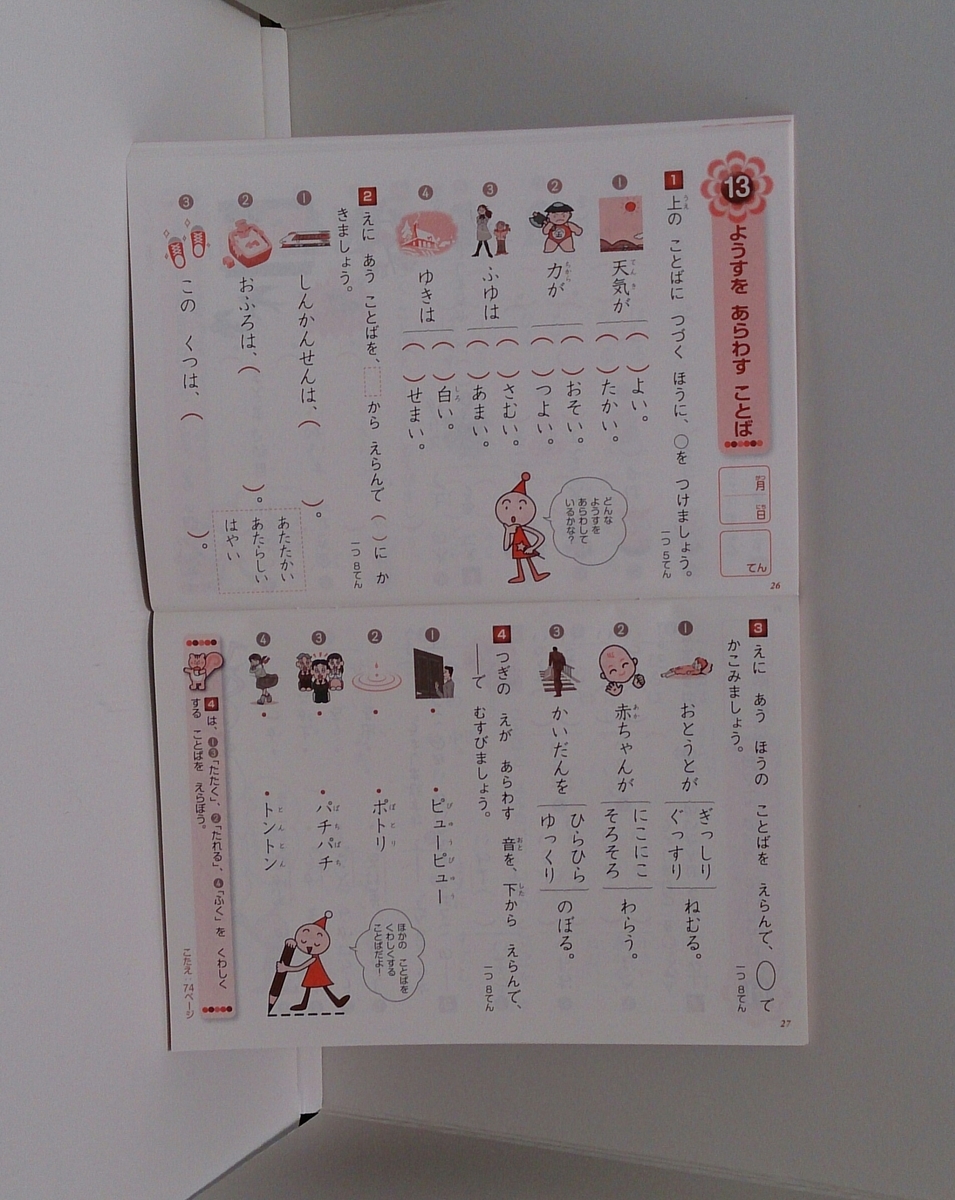 13
ようすを あらわす ことば
月 日
てん
1 上の ことばに つづく ほうに、○を つけましょう。
一つ 5てん
① 天気が
( )よい。
( )たかい。
② 力が
( )おそい。
( )つよい。
③ ふゆは
( )さむい。
( )あまい。
④ ゆきは
( )白い。
( )せまい。
どんな
ようすを
あらわして
いるかな?
2 えに あう ことばを、 から えらんで ( )に か
きましょう。
一つ 8てん
① しんかんせんは、( )。
② おふろは、( )。
③ この くつは、( )。
あたたかい
あたらしい
はやい
26
3 えに あう ほうの ことばを えらんで、○で
かこみましょう。
一つ 8てん
① おとうとが
ぎっしり
ぐっすり
ねむる。
② 赤ちゃんが
にこにこ
そろそろ
わらう。
③ かいだんを
ひらひら
ゆっくり
のぼる。
4 つぎの えが あらわす 音を、下から えらんで、
──で むすびましょう。
一つ 8てん
① ・ ・ピューピュー
② ・ ・ポトリ
③ ・ ・パチパチ
④ ・ ・トントン
ほかの ことばを
くわしくする
ことばだよ!
4は、①③「たたく」、②「たれる」、④「ふく」を くわしく
する ことばを えらぼう。
こたえ 74ページ
27